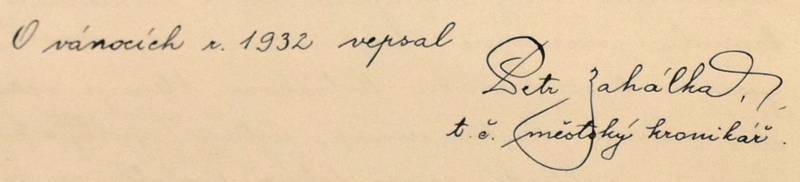 O vánocích r. 1932 vepsal
Petr Zahálka,
t. č. městský kronikář.